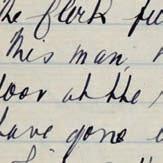 the clerk
this man,
door at the
have gone